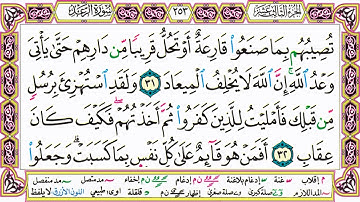 الجزء الثالث عشر ٢٥٣ سورة الرعد
تُصِيبُهُم بِمَا صَنَعُوا۟ قَارِعَةٌ أَوْ تَحُلُّ قَرِيبًا مِّن دَارِهِمْ حَتَّىٰ يَأْتِىَ
وَعْدُ ٱللَّهِ إِنَّ ٱللَّهَ لَا يُخْلِفُ ٱلْمِيعَادَ ٣١ وَلَقَدِ ٱسْتُهْزِئَ بِرُسُلٍ
مِّن قَبْلِكَ فَأَمْلَيْتُ لِلَّذِينَ كَفَرُوا۟ ثُمَّ أَخَذْتُهُمْ فَكَيْفَ كَانَ
عِقَابِ ٣٢ أَفَمَنْ هُوَ قَآئِمٌ عَلَىٰ كُلِّ نَفْسٍۭ بِمَا كَسَبَتْ وَجَعَلُوا۟